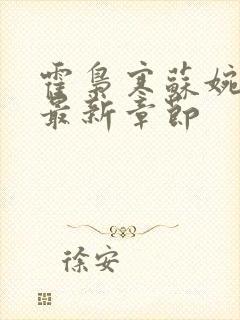 霍梟寒蘇婉
最新章節
徐安